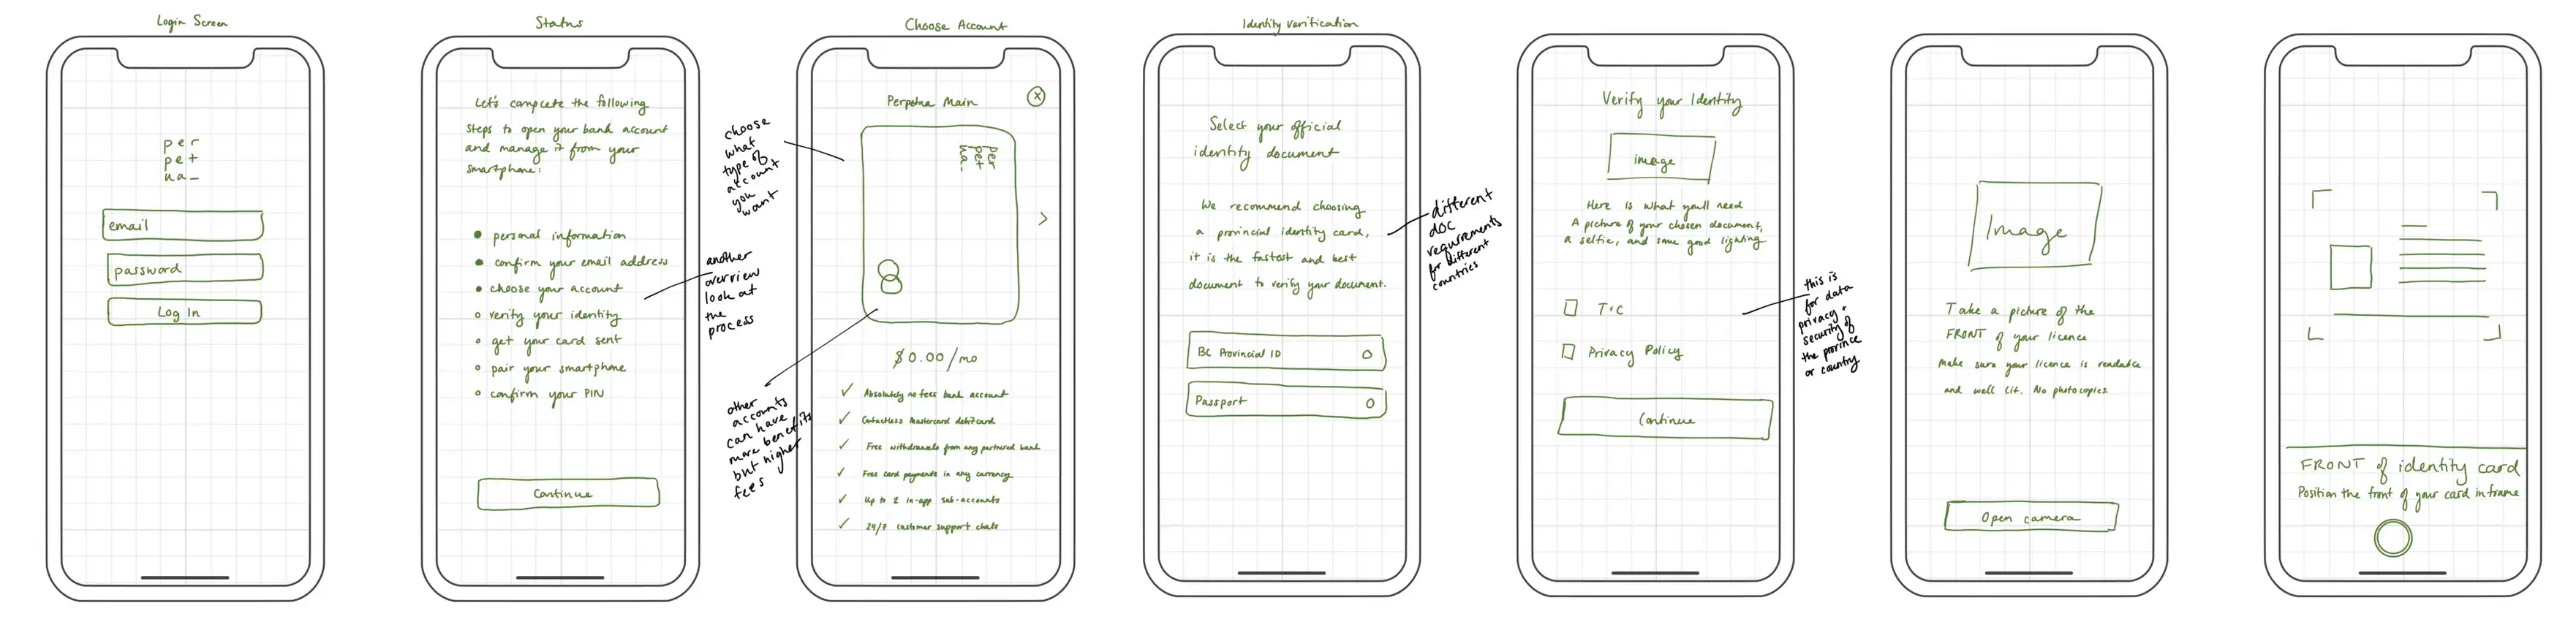 Login Screen
per
pet
ua_
email
password
Log In
Status
Let's complete the following
steps to open your bank account
and manage it from your
smartphone:
personal information
confirm your email address
choose your account
verify your identity
get your card sent
pair your smartphone
confirm your PIN
Continue
another
overview
look at
the
process
Choose Account
choose
what
type of
account
you
want
Perpetua Main
X
per
pet
ua_
>
$0.00/mo
Absolutely no fees bank account
Contactless Mastercard debit card
Free withdrawals from any partnered bank
Free card payments in any currency
Up to 2 in-app sub-accounts
24/7 customer support chats
other
accounts
can have
more benefits
but higher
fees
Identity Verification
Select your official
identity document
We recommend choosing
a provincial identity card,
it is the fastest and best
document to verify your document.
BC Provincial ID
Passport
different
doc
requirements
for different
countries
Verify your Identity
image
Here is what you'll need
A picture of your chosen document,
a selfie, and some good lighting.
T+C
Privacy Policy
Continue
this is
for data
privacy +
security of
the province
or country
Image
Take a picture of the
FRONT of your licence
Make sure your licence is readable
and well lit. No photocopies.
Open camera
FRONT of identity card
Position the front of your card in frame